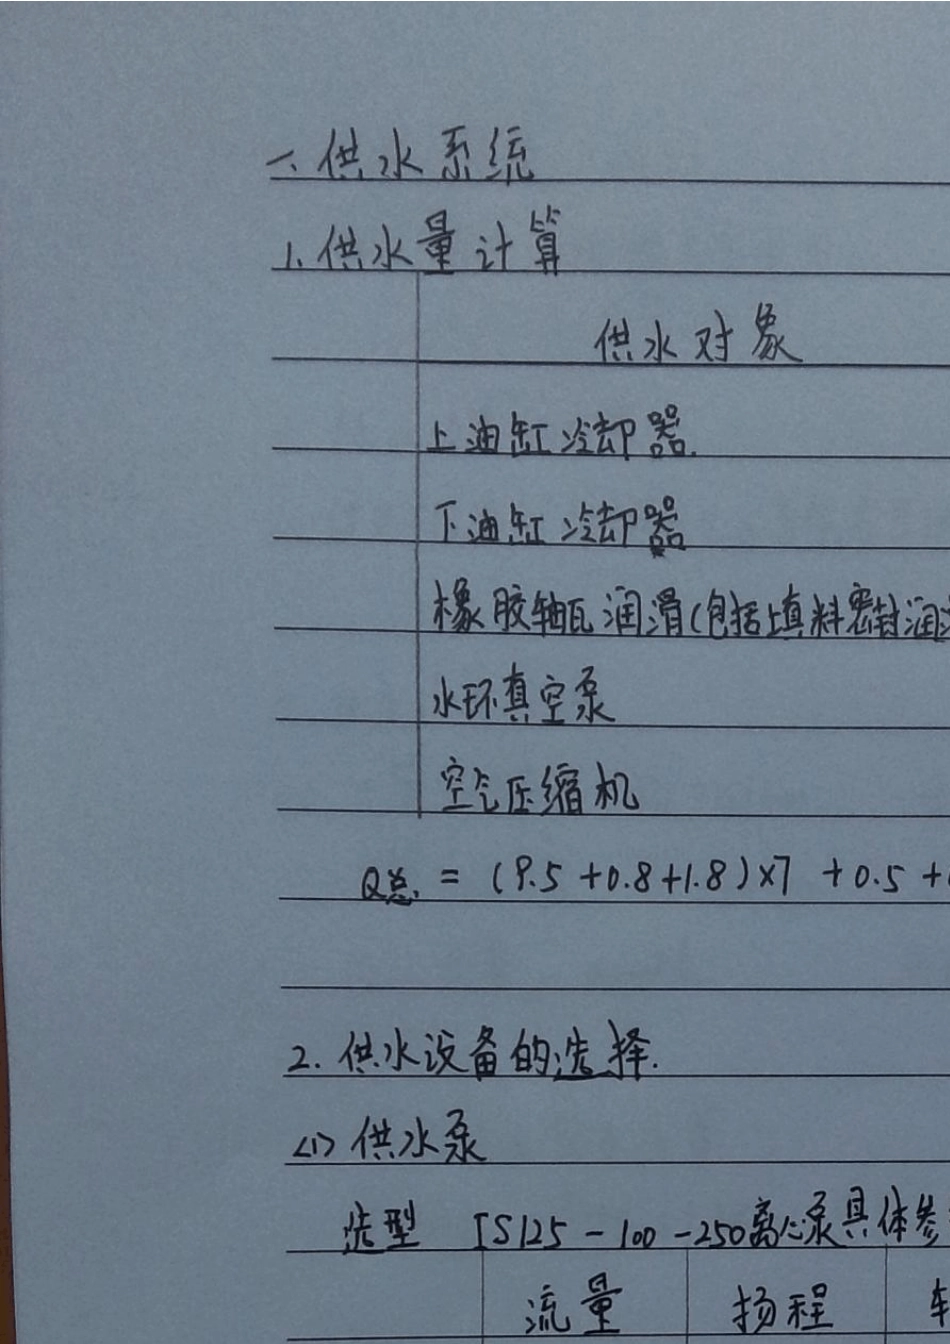 一、供水系统
1、供水量计算
供水对象
上油缸冷却器.
下油缸冷却器
橡胶轴瓦润滑(包括填料密封润
水环真空泵
空气压缩机
Q总. = (9.5+0.8+1.8)×7 +0.5+
2. 供水设备的选择.
(1) 供水泵
选型 IS125-100-250离心泵具体参
流量 扬程